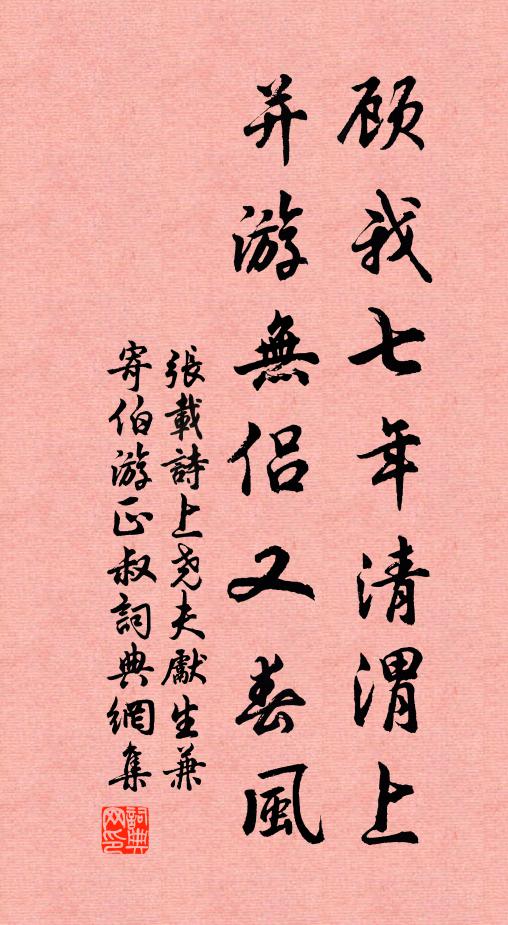 顾我七年清渭上
并游無侣又春風
張載詩上尧夫獻生兼
寄伯游正叔詞典網集
詞典
网印